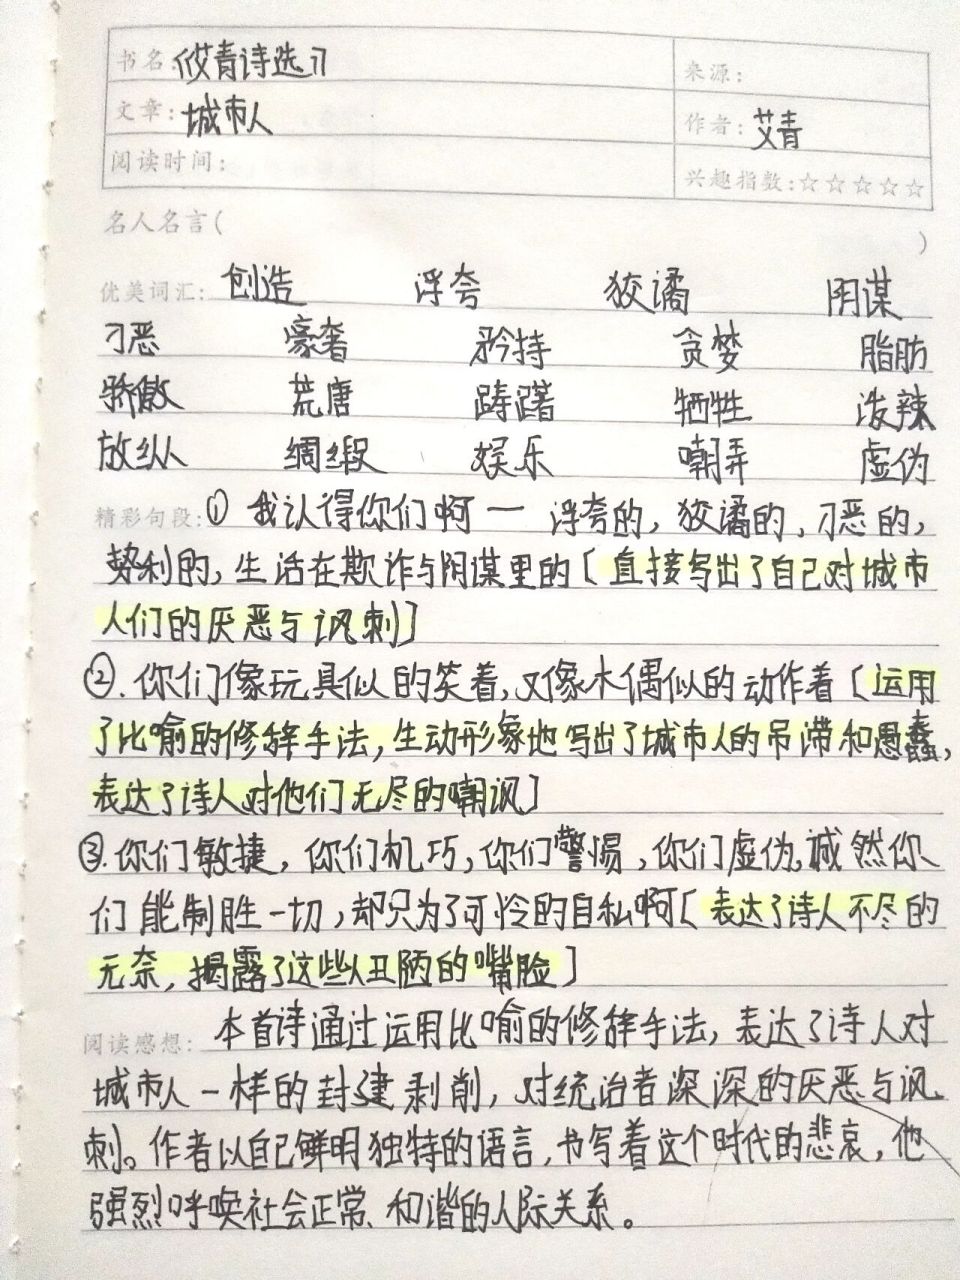 书名:《艾青诗选》 来源:
文章:城市人 作者:艾青
阅读时间: 兴趣指数:☆☆☆☆☆
名人名言( )
优美词汇: 创造 浮夸 狡谲 阴谋
刁恶 豪奢 矜持 贪婪 脂肪
骄傲 荒唐 踌躇 牺牲 泼辣
放纵 绸缎 娱乐 嘲弄 虚伪
精彩句段:① 我认得你们啊一 浮夸的,狡谲的、刁恶的,
势利的,生活在欺诈与阴谋里的[直接写出了自己对城市
人们的厌恶与讽刺]
②.你们像玩具似的笑着,又像木偶似的动作着[运用
了比喻的修辞手法,生动形象地写出了城市人的呆滞和愚蠢,
表达了诗人对他们无尽的嘲讽]
③.你们敏捷,你们机巧,你们警惕,你们虚伪,诚然你
们能制胜一切,却只为了可怜的自私啊[表达了诗人不尽的
无奈,揭露了这些人丑陋的嘴脸]
阅读感想: 本首诗通过运用比喻的修辞手法,表达了诗人对
城市人一样的封建剥削,对统治者深深的厌恶与讽
刺。作者以自己鲜明独特的语言,书写着这个时代的悲哀,他
强烈呼唤社会正常、和谐的人际关系。